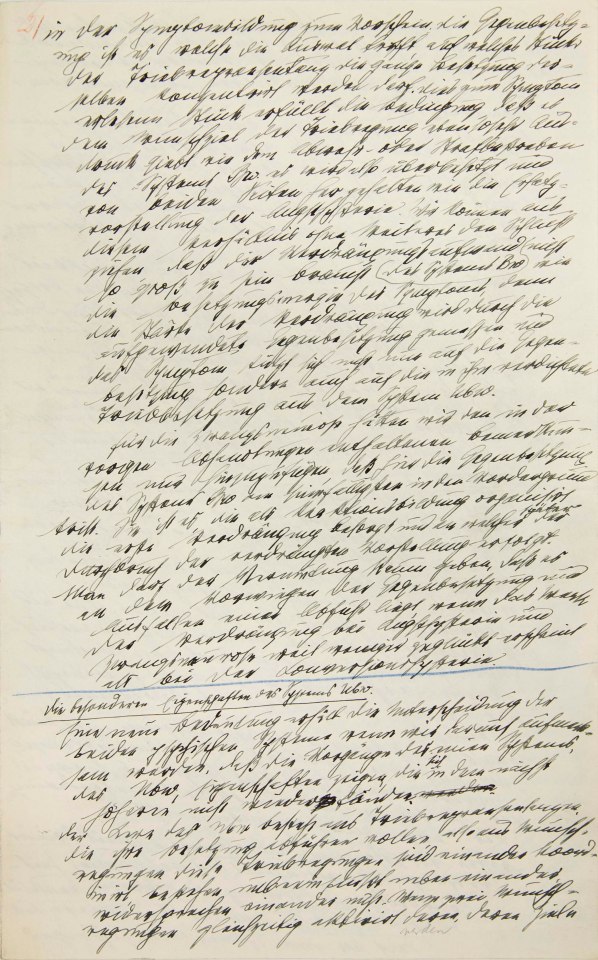 3)
in der Symptombildung zum Vorschein. die Gegenbesetz-
ung ist es welche die Auswal trifft auf welches Stück
der Triebrepraesentanz die ganze Besetzung der-
selben konzentrirt werden darf. dies zum Symptom
erlesene Stück erfüllt die Bedingung daß es
dem Wunschziel der Triebregung ebensosehr Aus-
druck giebt wie dem Abwehr- oder Strafbestreben
des Systems Bw. es wird also überbesetzt und
von beiden Seiten her gehalten wie die Ersatz-
vorstellung der Angsthysterie. Wir können aus
diesem Verhältnis ohne weiteres den Schluß
ziehen daß der Verdrängungsaufwand nicht
so groß zu sein braucht (des Systems Bw) wie
die Besetzungsenergie des Symptoms, denn
die Stärke der Verdrängung wird durch die
aufgewendete Gegenbesetzung gemessen und
das Symptom stützt sich nicht nur auf die Gegen-
besetzung sondern auch auf die in ihm verdichtete
Triebbesetzung aus dem System Ubw.
für die Zwangsneurose hätten wir den in der
vorigen Abhandlung enthaltenen Bemerkun-
gen nur hinzuzufügen, daß hier die Gegenbesetzung
des Systems Bw am sinnfälligsten in den Vordergrund
tritt. Sie ist es die als Reaktionsbildung organisirt
die erste Verdrängung besorgt und an welcher später der
Durchbruch der verdrängten Vorstellung erfolgt.
Man darf der Vermutung Raum geben, daß es
an dem Vorwiegen der Gegenbesetzung und
Ausfallen einer Abfuhr liegt, wenn das Werk
der Verdrängung bei Angsthysterie und
Zwangsneurose weit weniger geglückt erscheint
als bei der Conversionshysterie.
die besonderen Eigenschaften des Systems Ubw.
Eine neue Bedeutung erhält die Unterscheidung der
beiden psychischen Systeme wenn wir darauf aufmerk-
sam werden, daß die Vorgänge des einen Systems,
des Ubw, Eigenschaften zeigen die sich in dem nächst
höheren nicht wiederfinden
der Kern des Ubw besteht aus Triebrepraesentanzen
die ihre Besetzung abführen wollen also aus Wunsch-
regungen diese Triebregungen sind einander koord-
inirt bestehen unbeeinflußt neben einander
widersprechen einander nicht. Wenn zwei Wunsch-
regungen gleichzeitig aktivirt werden, deren Ziele